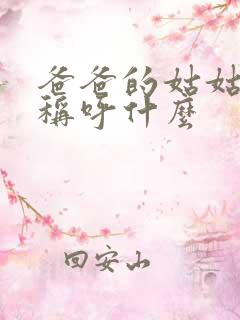 爸爸的姑姑
稱呼什麼
回安山